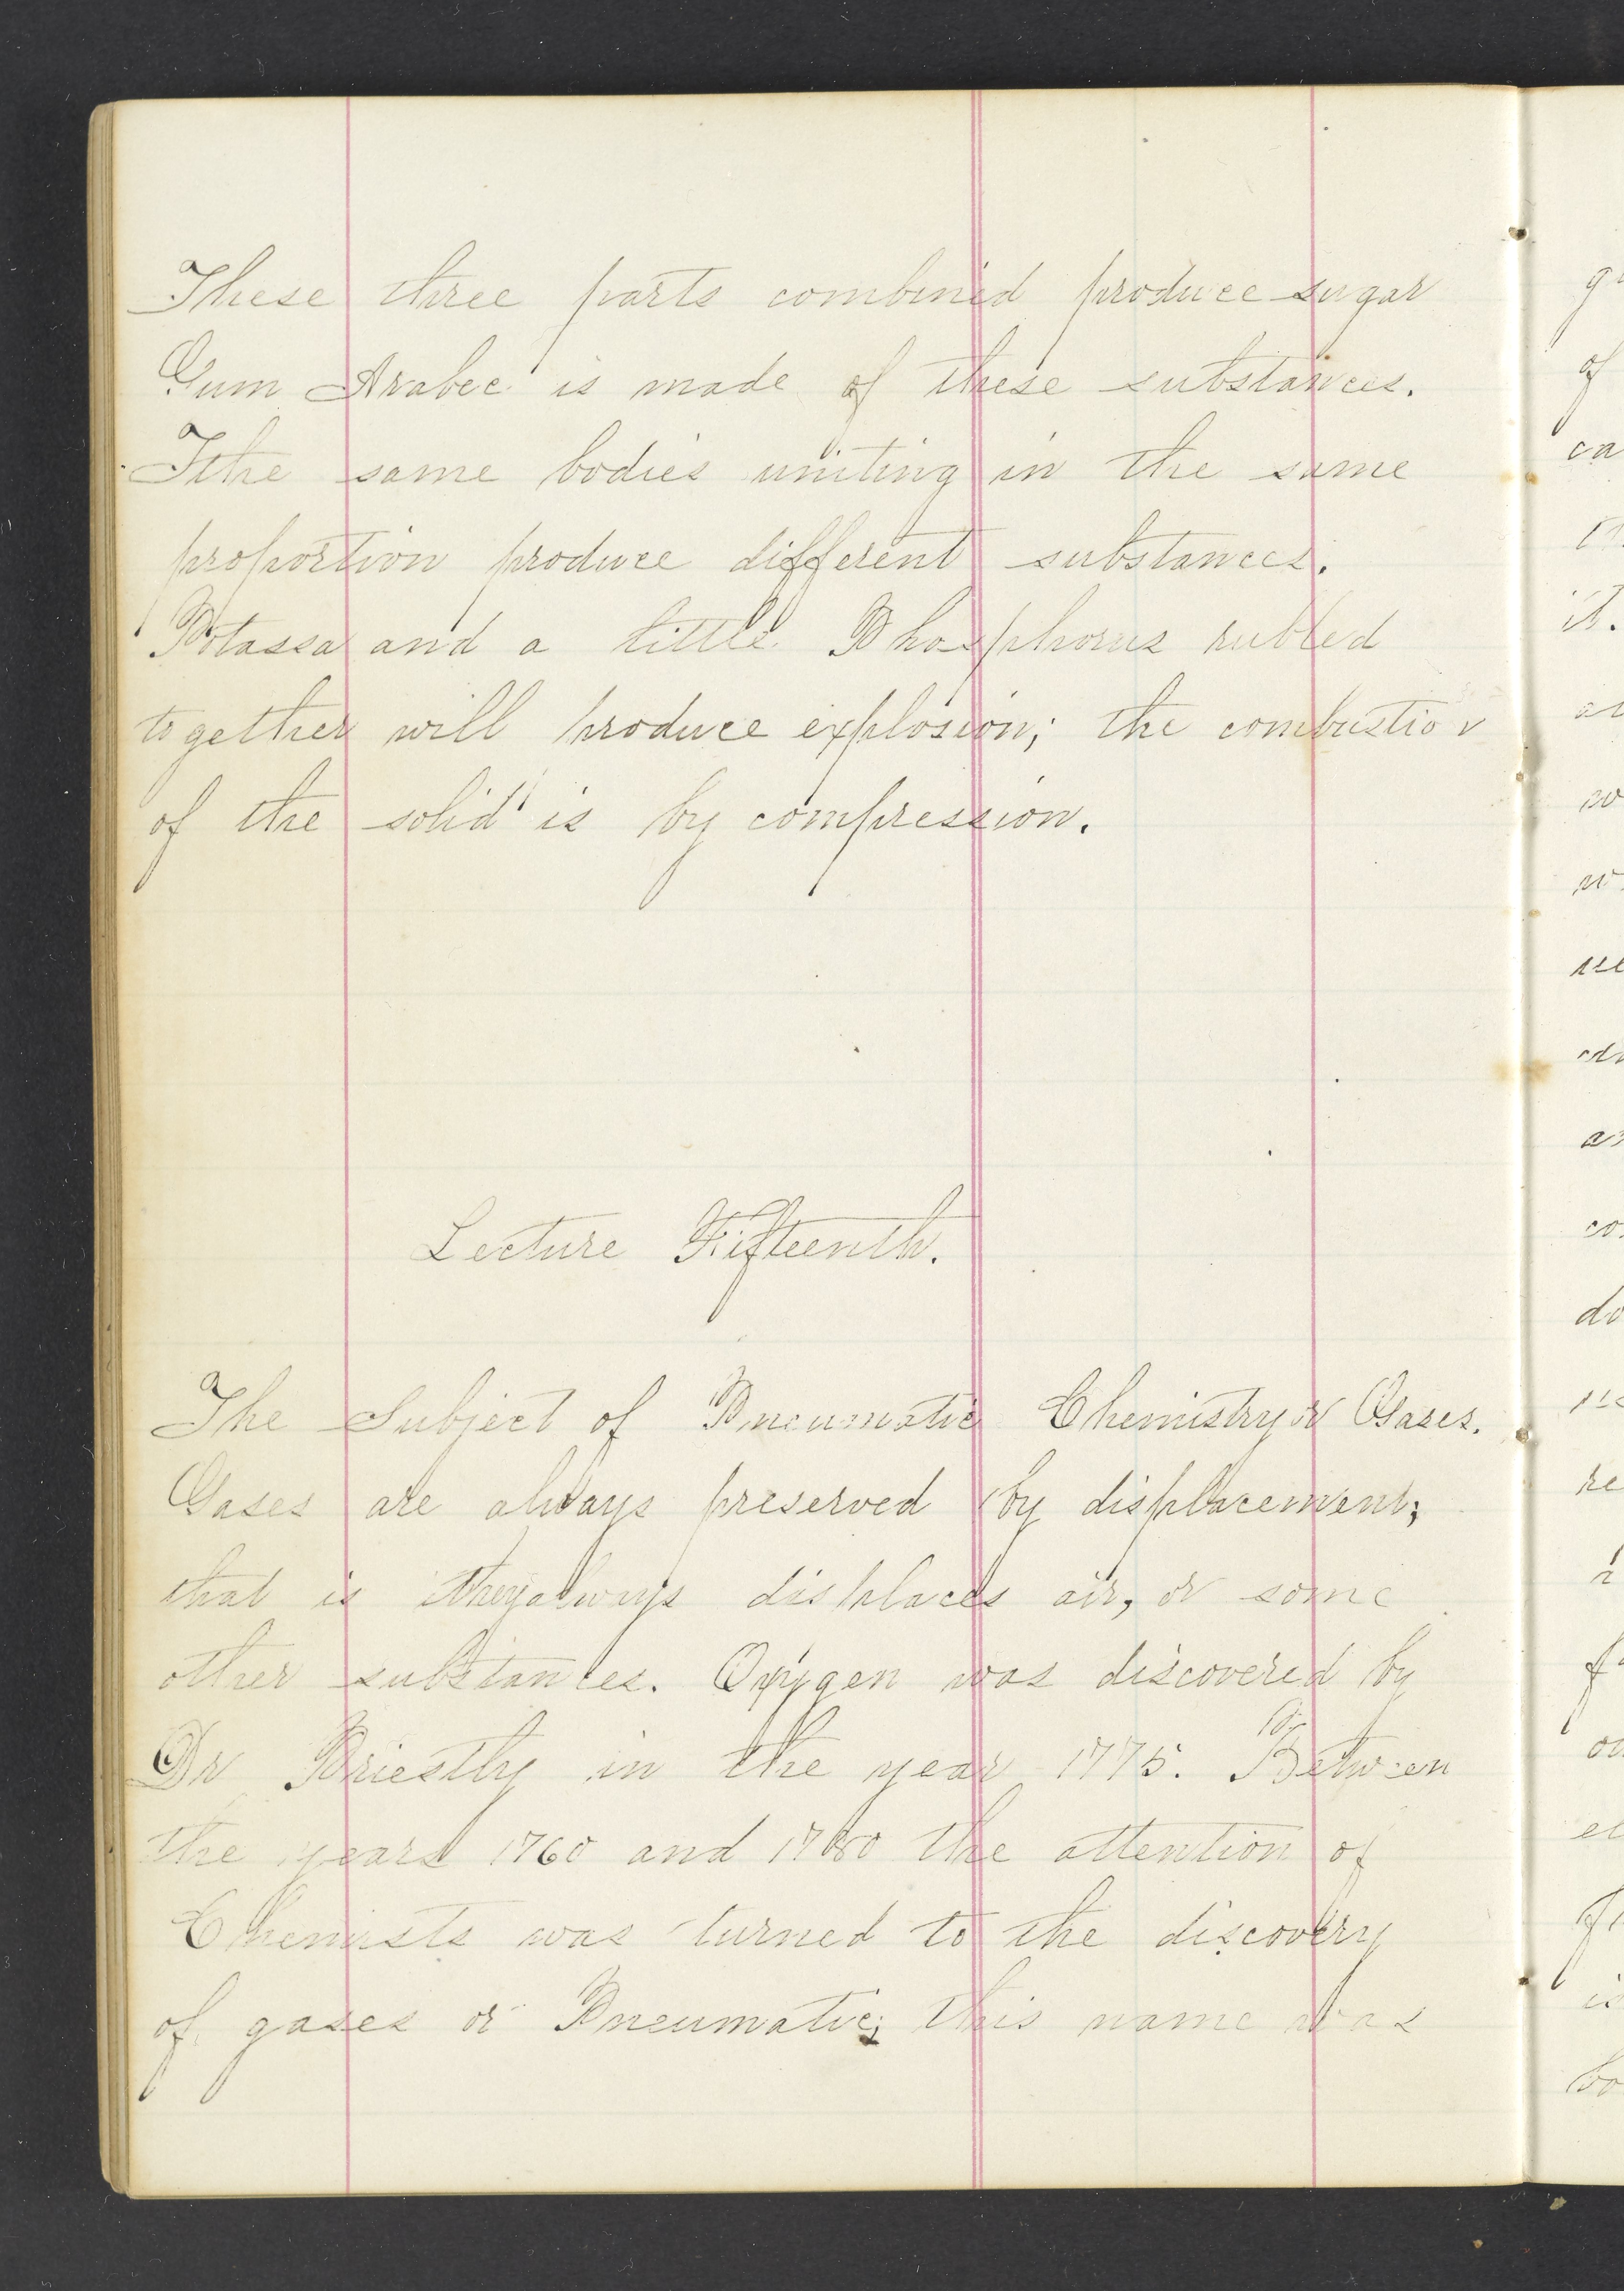 These three parts combined produce sugar
Gum Arabec is made of these substances.
Ithe same bodies uniting in the same
proportion produce different substances.
Potassa and a little Phosphorus rubbed
together will produce explosion; the combustion
of the solid is by compression.
Lecture Fifteenth.
The Subject of Pneumatic Chemistry or Gases.
Gases are always preserved by displacement;
that is they always displaces air, or some
other substances. Oxygen was discovered by
Dr Priestly in the year 1775. Between
the years 1760 and 1780 the attention of
Chemists was turned to the discovery
of gases or Pneumatic; this name was